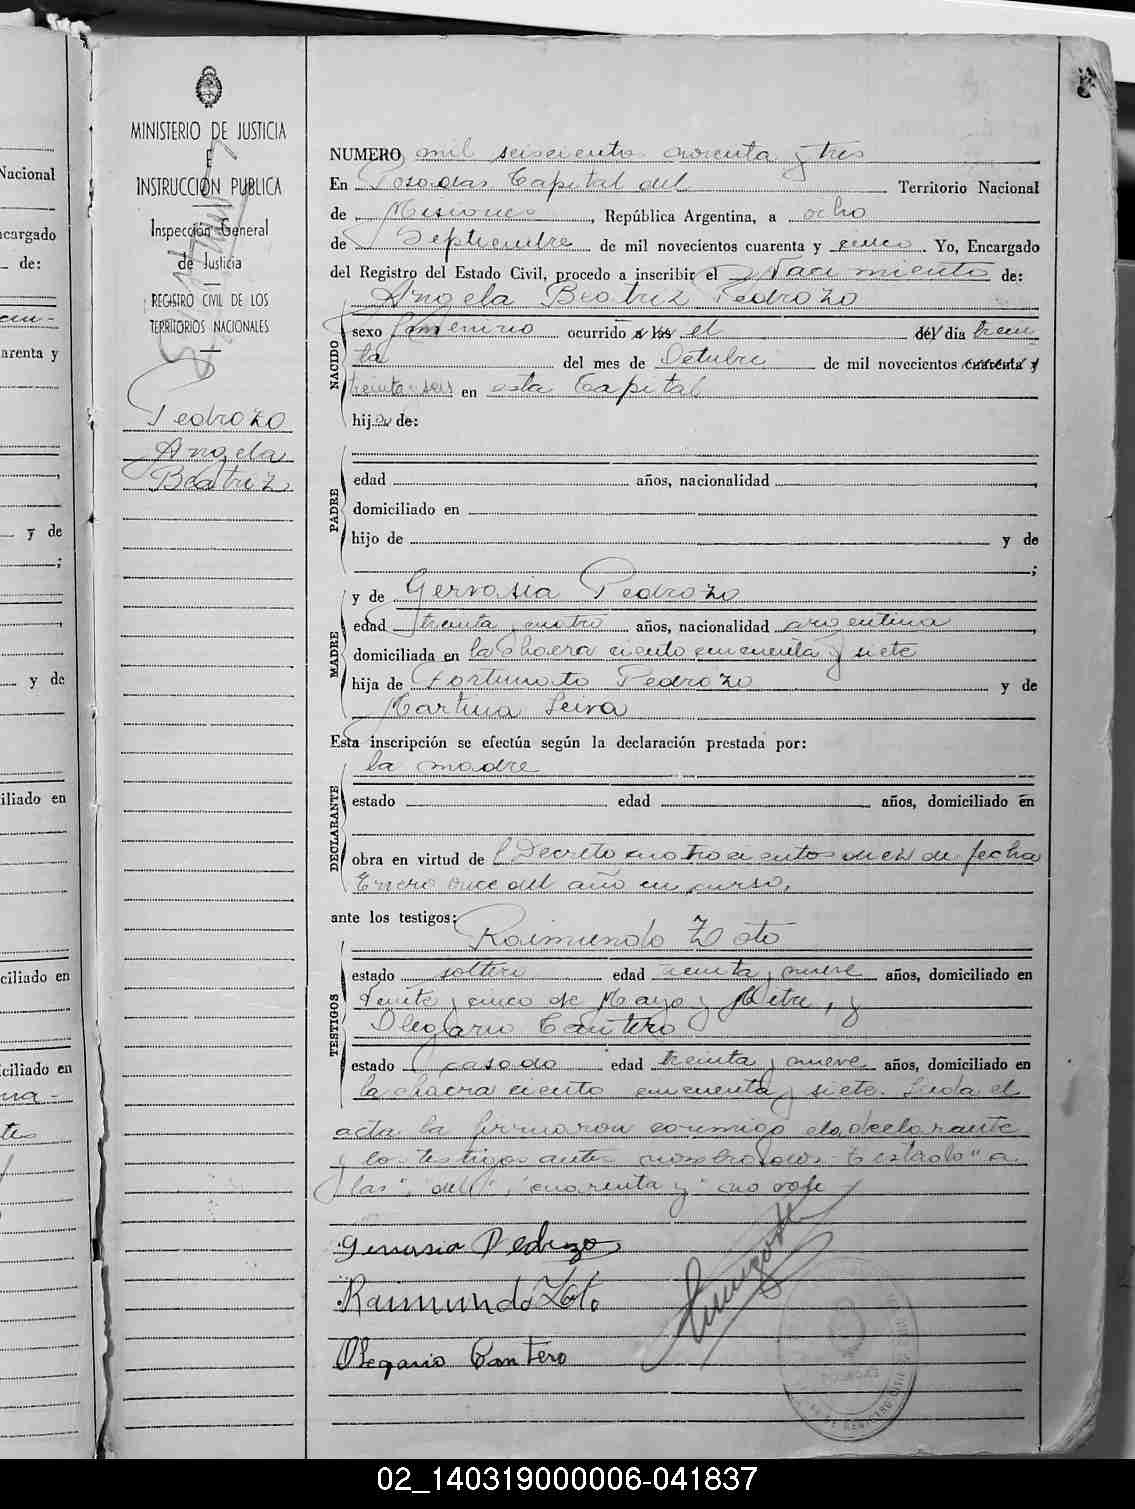 Nacional
ncargado
de:
arenta y
y de
;
y de
iliado en
ciliado en
ciliado en
MINISTERIO DE JUSTICIA
E
INSTRUCCIÓN PUBLICA
Inspección General
de Justicia
REGISTRO CIVIL DE LOS
TERRITORIOS NACIONALES
Pedrozo
Angela
Beatriz
NUMERO mil seiscientos noventa y tres
En Posadas Capital del Territorio Nacional
de Misiones, República Argentina, a ocho
de Septiembre de mil novecientos cuarenta y cinco. Yo, Encargado
del Registro del Estado Civil, procedo a inscribir el Nacimiento de:
Angela Beatriz Pedrozo
NACIDO
sexo femenino ocurrido a las el del día trein-
ta del mes de Octubre de mil novecientos cuarenta y
treinta seis en esta Capital
hija de:
PADRE
edad años, nacionalidad
domiciliado en
hijo de y de
;
MADRE
y de Gervasia Pedrozo
edad treinta y cuatro años, nacionalidad argentina,
domiciliada en la chacra ciento cincuenta y siete
hija de Fortunato Pedrozo y de
Martina Leiva
Esta inscripción se efectúa según la declaración prestada por:
DECLARANTE
la madre
estado edad años, domiciliado en
obra en virtud del Decreto cuatrocientos diez de fecha
Enero once del año en curso,
ante los testigos:
TESTIGOS
Raimundo Zoto
estado soltero edad treinta y nueve años, domiciliado en
Veinte y cinco de Mayo y Mitre, y
Olegario Cantero
estado casado edad treinta y nueve años, domiciliado en
la chacra ciento cincuenta y siete. Leida el
acta la firmaron conmigo la declarante
y los testigos antes nombrados. Testado "a
las", "del", "cuarenta y" no vale
Gervasia Pedrozo
Raimundo Zoto
Olegario Cantero
POSADAS
REGISTRO CIVIL
02_140319000006-041837